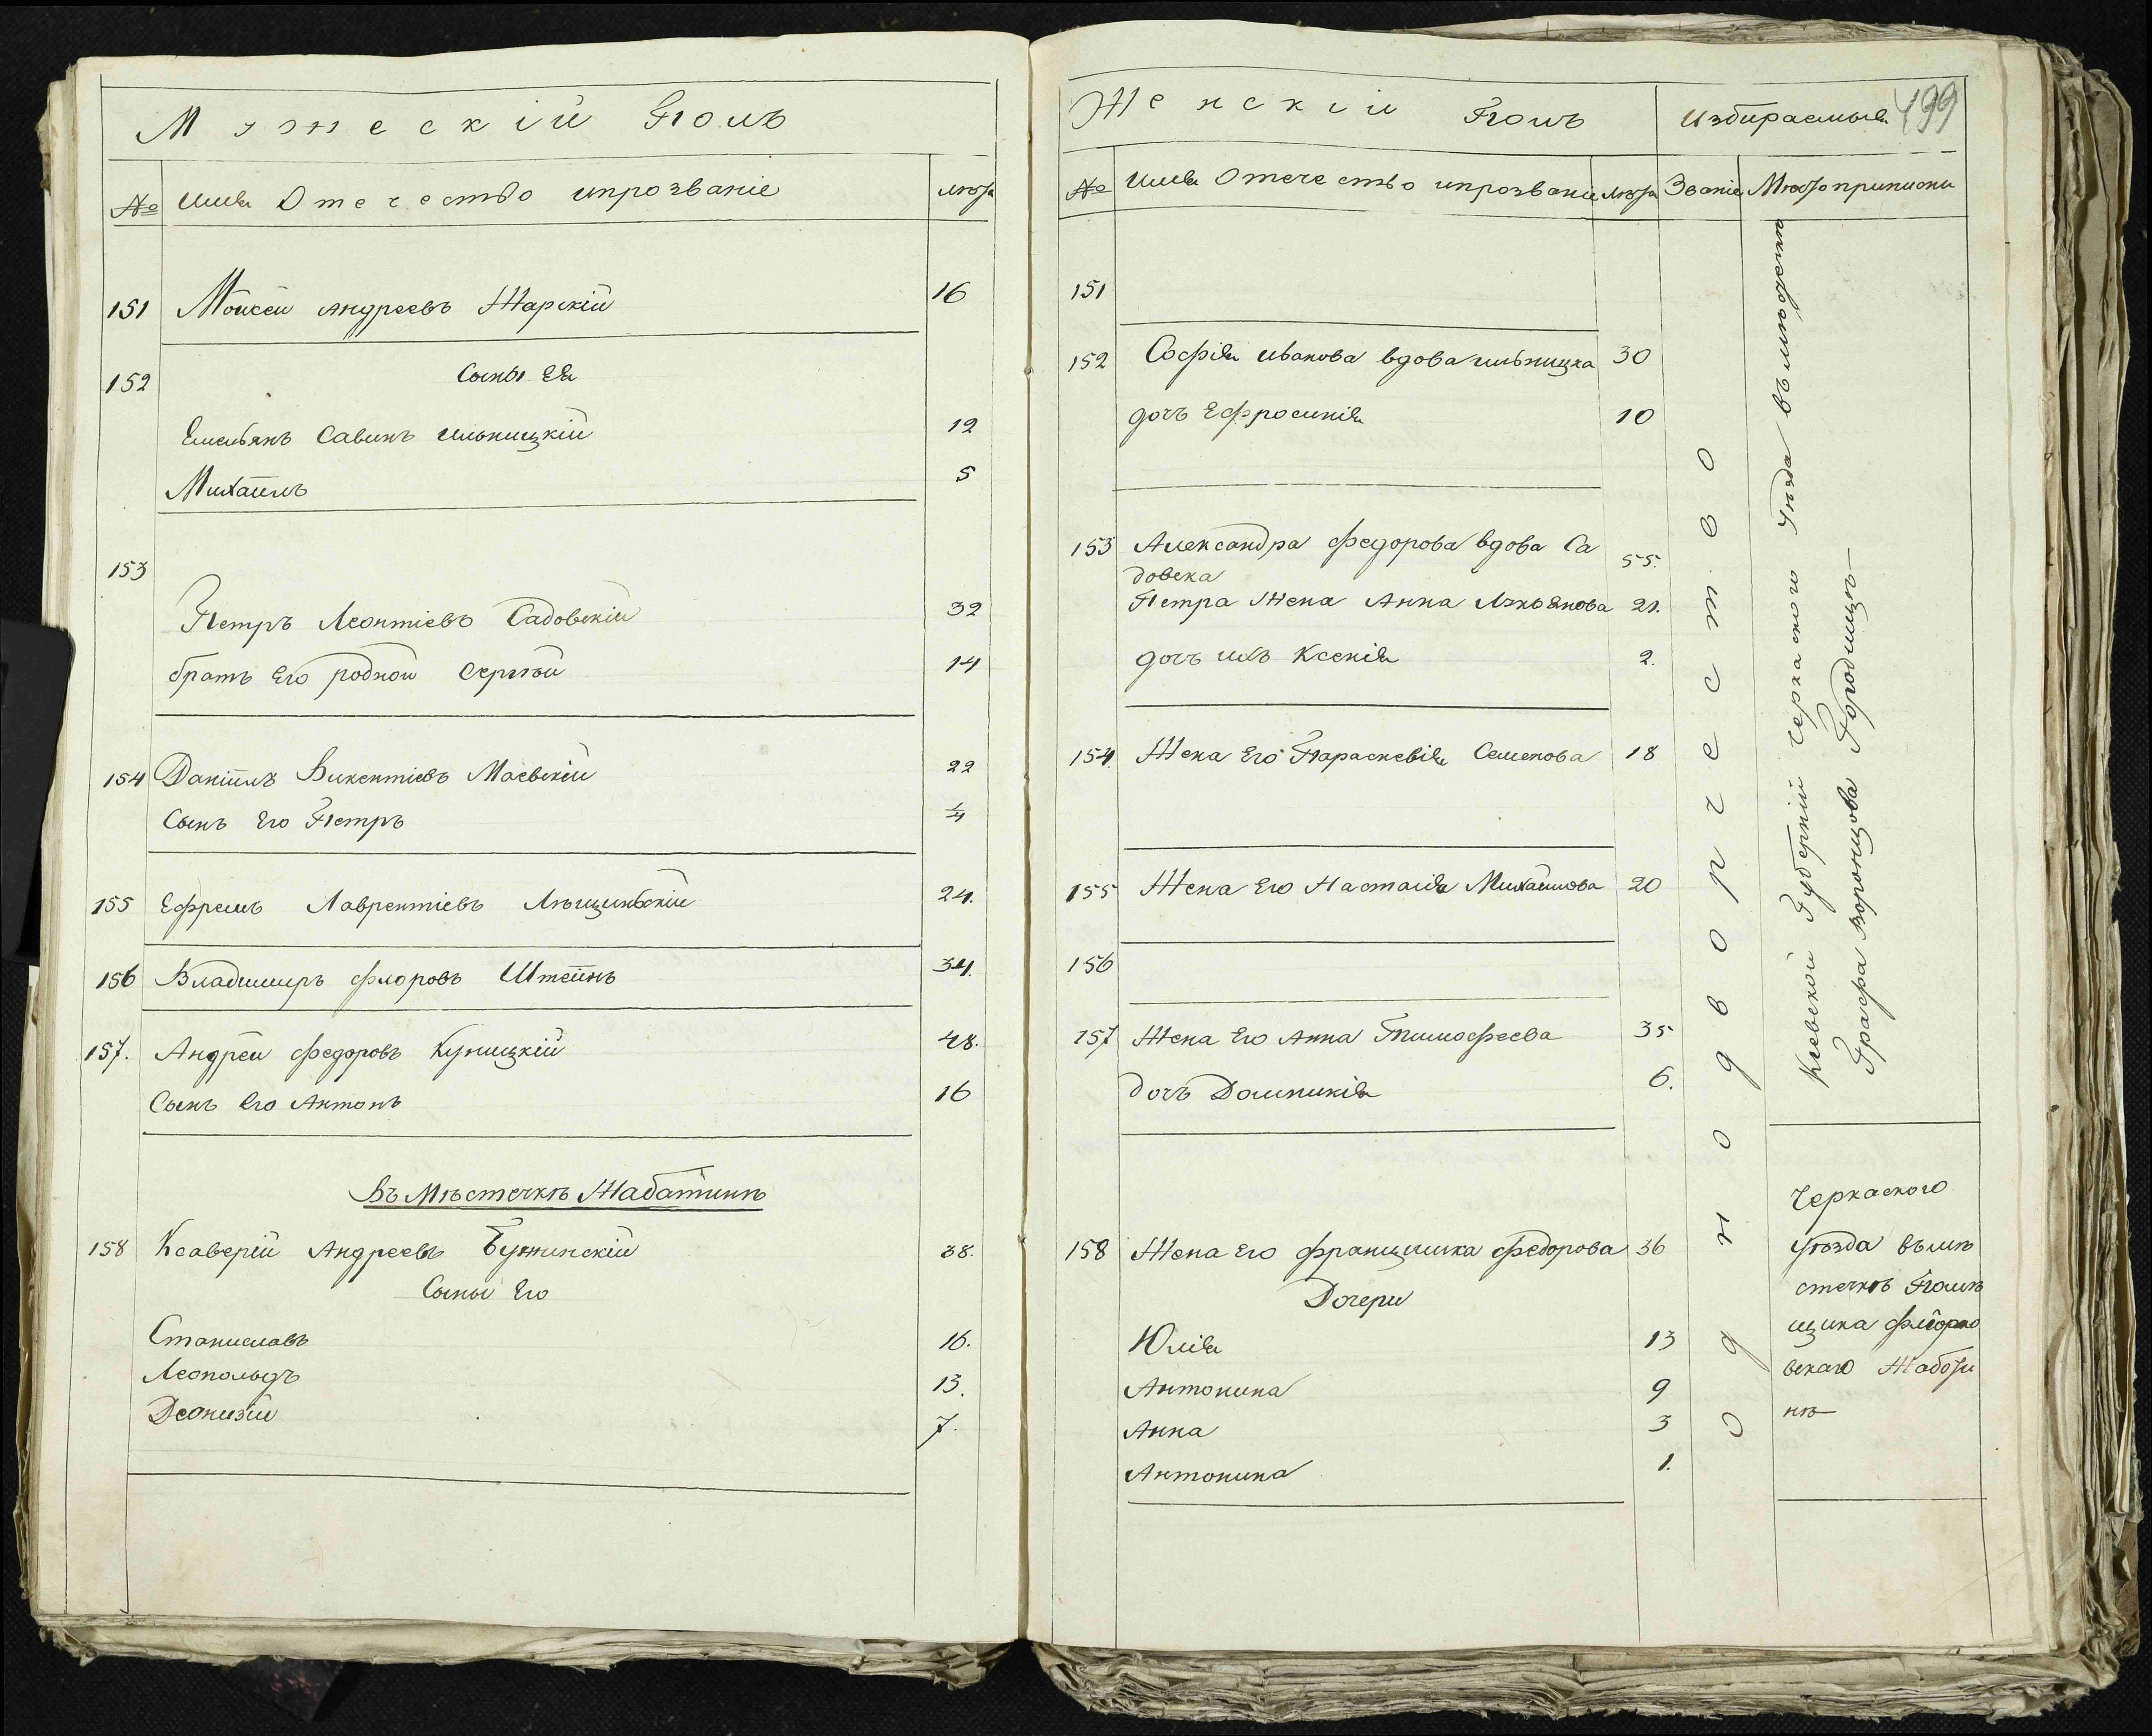 Мужескій Полъ
№ Имя Отечество ипрозваніе лѣта
151 Моисей Андреевъ Жарскій 16
152 Сыны Ея
Емельянъ Савинъ Ильницкій 12
Михаилъ 5
153
Петръ Леонтіевъ Садовскій 32
братъ Его родной Сергѣй 14
154 Даніилъ Викентіевъ Маевскій 22
Сынъ Его Петръ 4
155 Ефремъ Лаврентіевъ 24.
156 Владимиръ Флоровъ Штейнъ 34.
157. Андрей Федоровъ Куницкій 48.
Сынъ Его Антонъ 16
Въ Мѣстечкѣ Жаботинѣ
158 Ксаверій Андреевъ Бужинскій 38.
Сыны Его
Станиславъ 16.
Леопольдъ 13.
Деонизій 7.
Женскій Полъ Избираемыя 499
№ Имя Отечество ипрозваніе лѣта Званіе Мѣсто приписки
151
152 Софія Иванова вдова Ильницка 30
дочь Ефросинія 10
153 Александра Федорова вдова Са 55.
довска
Петра Жена Анна Лукьянова 21.
дочь ихъ Ксенія 2.
154 Жена Его Параскевія Семенова 18
155 Жена Его Настасія Михайлова 20
156
157 Жена Его Анна Тимофеева 35
дочь Домникія 6.
158 Жена Его Францишка Федорова 36
Дочери
Юлія 13
Антонина 9
Анна 3
Антонина 1.
однодворчество
Кіевской Губерніи Черкаского Уѣзда въ имѣніи
Графа Воронцова Городищѣ
Черкаского
уѣзда въ мѣ
стечкѣ Помѣ
щика Флорко
вскаго Жаботи
нѣ